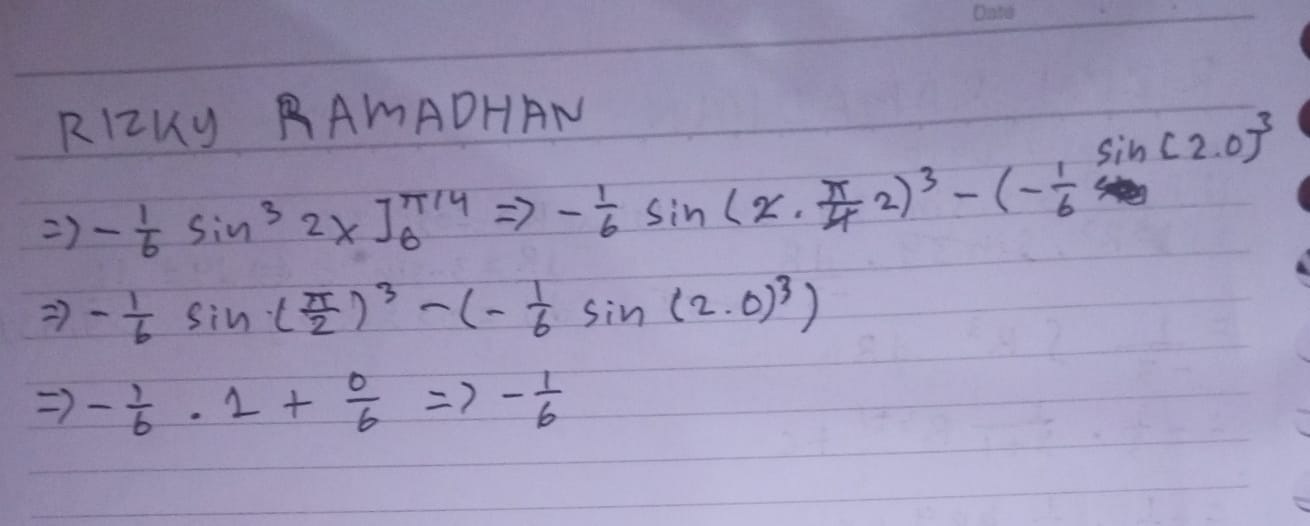 Date
RIZKY RAMADHAN
=) - 1/6 sin³ 2x ]₀^π/4 => - 1/6 sin (2. π/4 2)³ - (- 1/6 sin (2.0)³
=) - 1/6 sin (π/2)³ - (- 1/6 sin (2.0)³)
=) - 1/6 . 1 + 0/6 => - 1/6